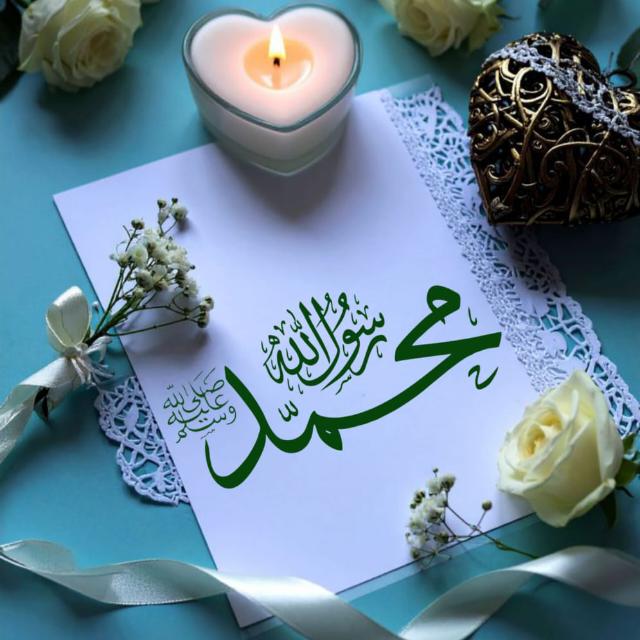 محمد
رسول الله
صلى الله
عليه
وسلم